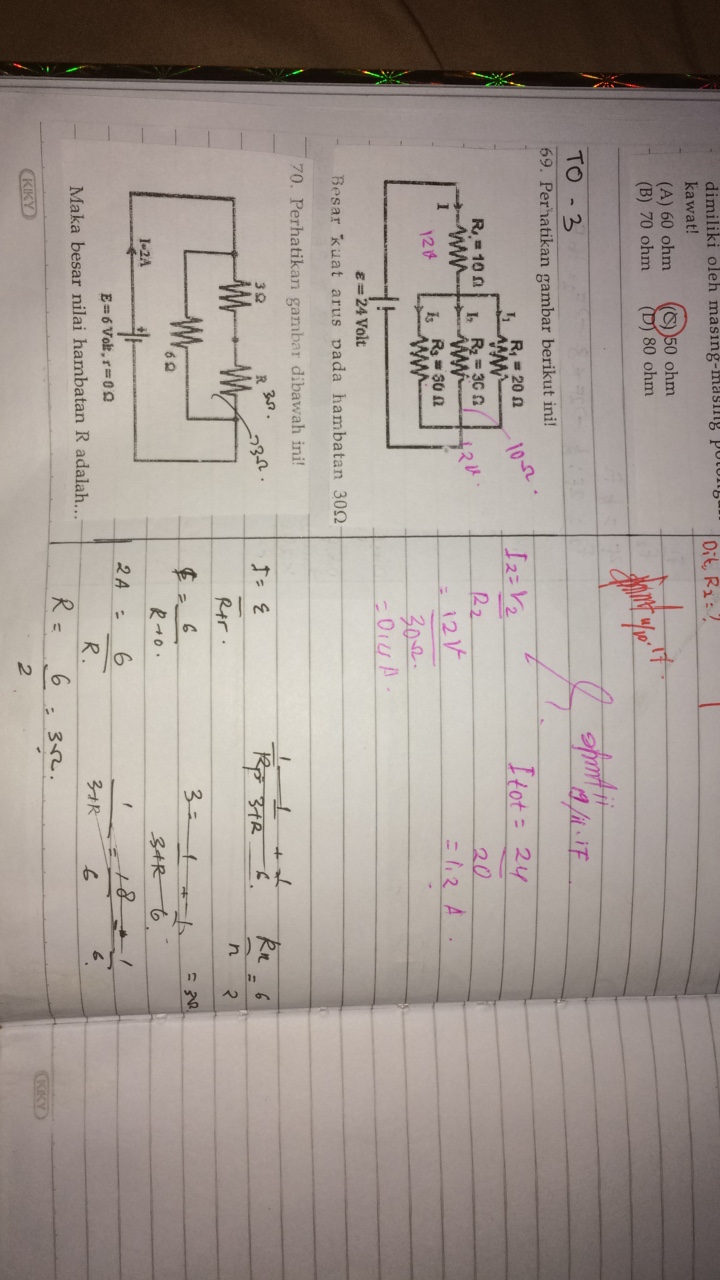 dimiliki oleh masing-masing
kawat!
(A) 60 ohm (C) 50 ohm
(B) 70 ohm (D) 80 ohm
Dit, R₁ = ?
TO - 3
69. Perhatikan gambar berikut ini!
I₁ R₁ = 20 Ω
10Ω.
R₁ = 10 Ω I₂ R₂ = 30 Ω
I 12V I₃ R₃ = 60 Ω 12V.
ε = 24 Volt
Besar kuat arus pada hambatan 30Ω
I₂ = V₂
R₂
= 12V
30Ω.
= 0,4 A.
Itot = 24
20
= 1,2 A.
70. Perhatikan gambar dibawah ini!
3 Ω R 3Ω.
73Ω.
6 Ω
I=2A
E = 6 Volt, r = 0 Ω
Maka besar nilai hambatan R adalah...
I = ε
R+r.
= 6
R+0.
2A = 6
R.
R = 6 = 3Ω.
2
1 = 1 + 1
Rp 3+R 6.
3 = 1 + 1
3+R 6.
1 = 18 1
3+R 6 6.
= 6
n 2
= 3Ω
KIKY
KIKY